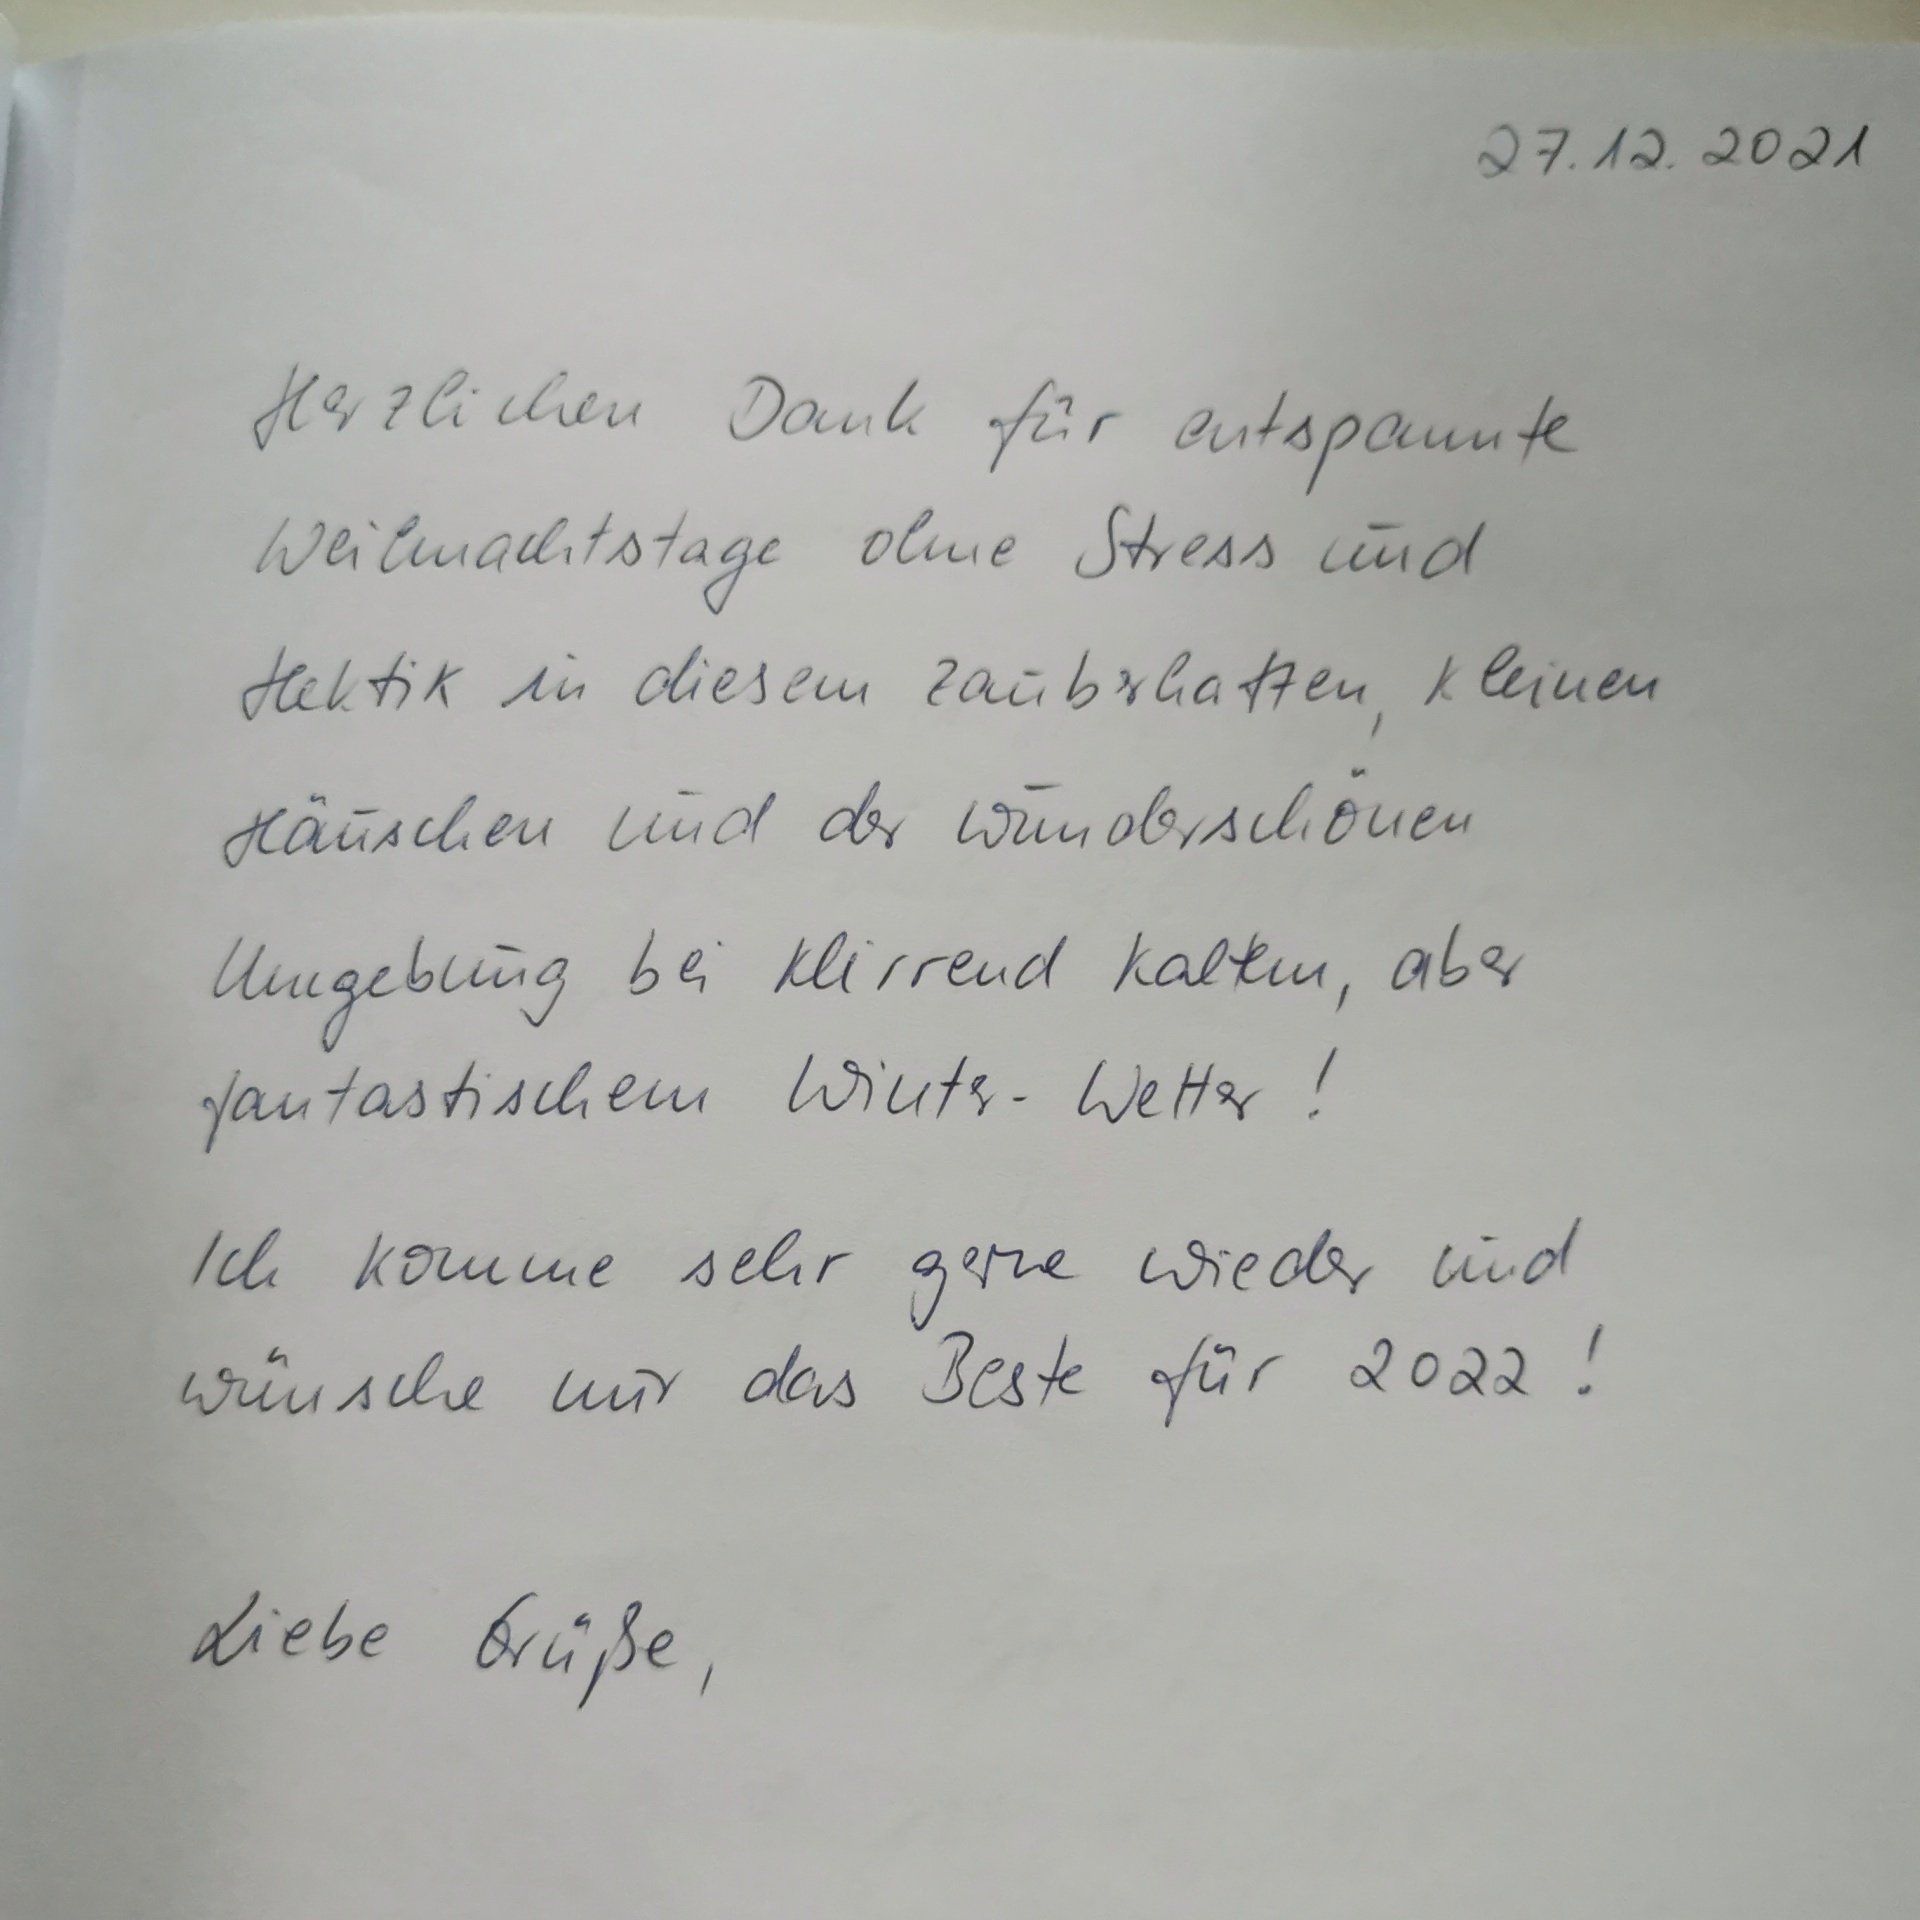 27.12.2021
Herzlichen Dank für entspannte
Weihnachtstage ohne Stress und
Hektik in diesem zauberhaften, kleinen
Häuschen und der wunderschönen
Umgebung bei klirrend kaltem, aber
fantastischem Winter-Wetter!
Ich komme sehr gerne wieder und
wünsche nur das Beste für 2022!
Liebe Grüße,